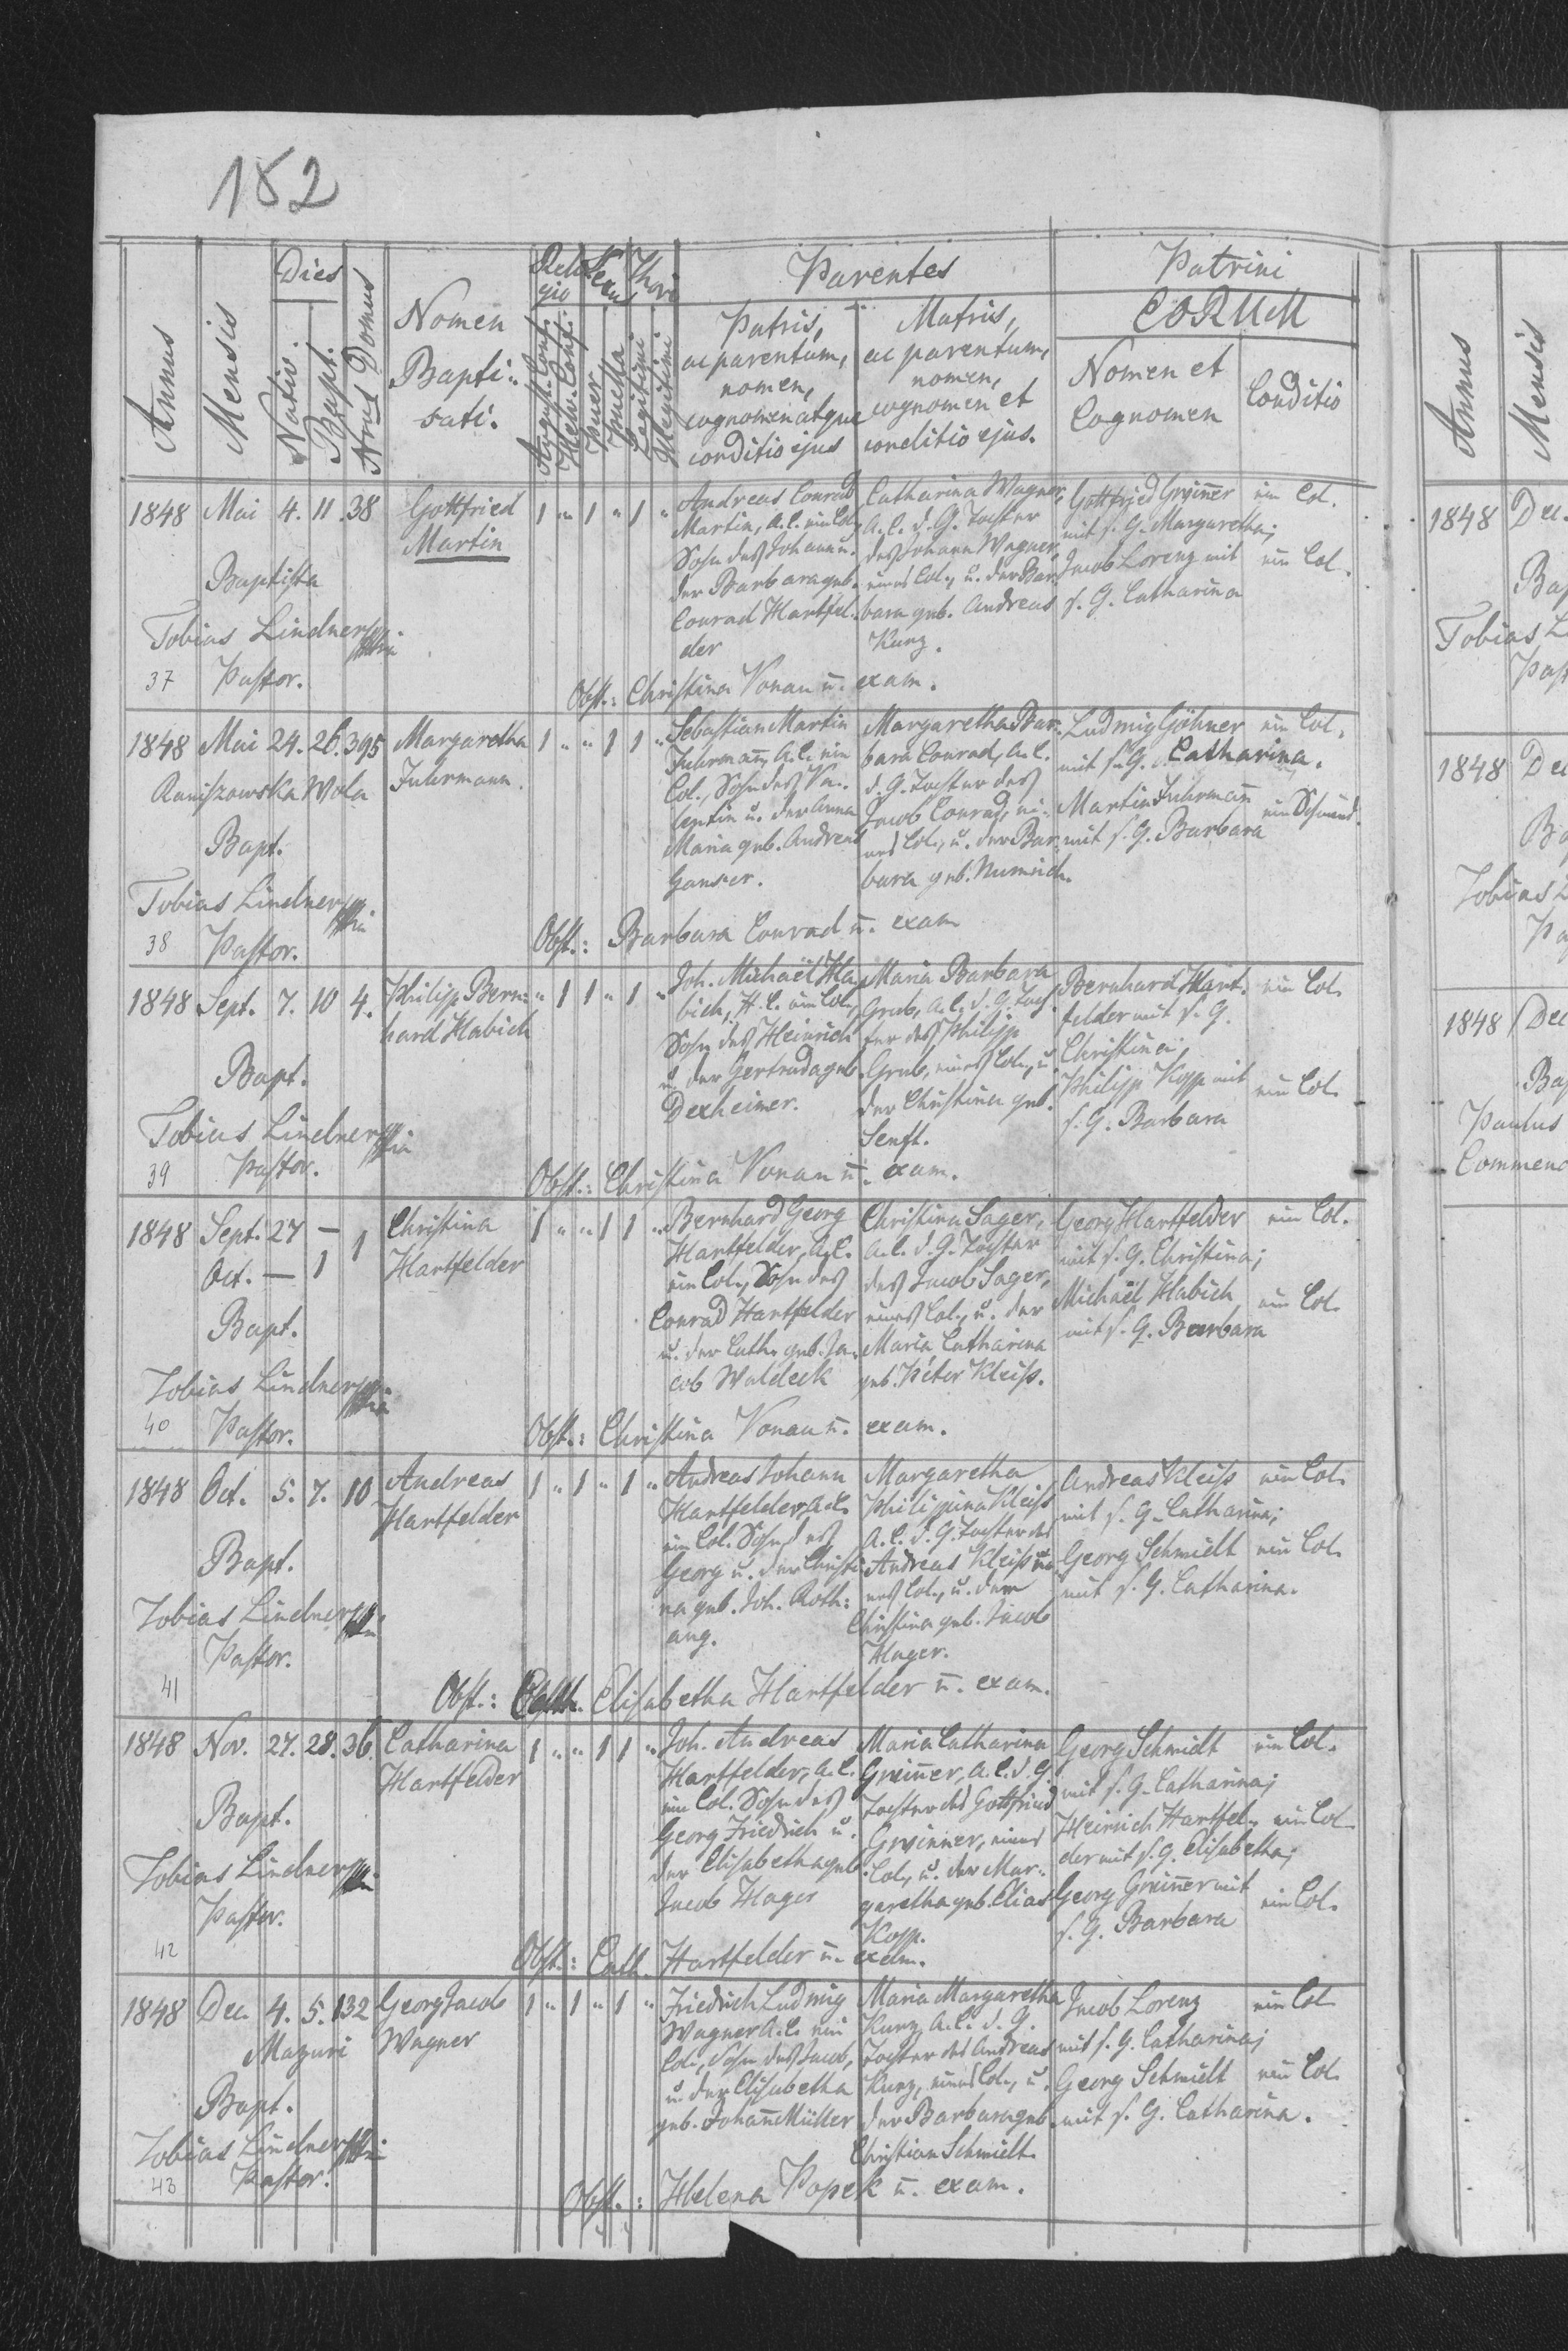 182
Dies
Religio
Sexus
Thori
Parentes
Patrini
Annus
Mensis
Nativ.
Bapt.
Nrus Domus
Nomen
Bapti-
sati.
August. Conf.
Helv. Conf.
Puer
Puella
Legitimi
Illegitimi
Patris,
ac parentum,
nomen,
cognomen atque
conditio ejus
Matris,
ac parentum,
nomen,
cognomen et
conditio ejus.
EORUM
Nomen et
Cognomen
Conditio
1848 Mai 4. 11. 38
Gottfried
Martin
1 " 1 " 1 "
Andreas Conrad
Martin, A.C. ein Col.
Sohn des Johann u.
der Barbara geb.
Conrad Hartfel-
der
Catharina Wagner,
A.C. d. G. Tochter
des Johann Wagner,
eines Col., u. der Bar-
bara geb. Andreas
Kunz.
Gottfried Greinner
mit s. G. Margaretha;
Jacob Lorenz mit
s. G. Catharina
ein Col.
ein Col.
Baptista
Tobias Lindner
37 Pastor.
Obst.: Christina Vonau u. exam.
1848 Mai 24. 26. 395
Raniszowska Wola
Margaretha
Fuhrmann.
1 " " 1 1 "
Sebastian Martin
Fuhrmann, A.C. ein
Col., Sohn des Va-
lentin u. der Anna
Maria geb. Andreas
Ganser.
Margaretha Bar-
bara Conrad, A.C.
d. G. Tochter des
Jacob Conrad, ei-
nes Col., u. der Bar-
bara geb. Numrich.
Ludwig Gühner
mit s. G. Catharina.
Martin Fuhrmann
mit s. G. Barbara
ein Col.
ein Schmied.
Bapt.
Tobias Lindner
38 Pastor.
Obst.: Barbara Conrad u. exam
1848 Sept. 7. 10 4.
Philipp Bern-
hard Habich
" 1 1 " 1 "
Joh. Michaël Ha-
bich, H.C. ein Col.,
Sohn des Heinrich
u. der Gertruda geb.
Dexheimer.
Maria Barbara
Grub, A.C. d. G. Toch-
ter des Philipp
Grub, eines Col., u.
der Christina geb.
Senft.
Bernhard Hart-
felder mit s. G.
Christina;
Philipp Kopp mit
s. G. Barbara
ein Col.
ein Col.
Bapt.
Tobias Lindner
39 Pastor.
Obst.: Christina Vonau u. exam.
1848 Sept. 27 —
Oct. — 1 1
Christina
Hartfelder
1 " " 1 1 "
Bernhard Georg
Hartfelder, A.C.
ein Col., Sohn des
Conrad Hartfelder
u. der Cath. geb. Ja-
cob Waldeck
Christina Sager,
A.C. d. G. Tochter
des Jacob Sager,
eines Col., u. der
Maria Catharina
geb. Peter Kleiss.
Georg Hartfelder
mit s. G. Christina;
Michaël Habich
mit s. G. Barbara
ein Col.
ein Col.
Bapt.
Tobias Lindner
40 Pastor.
Obst.: Christina Vonau u. exam.
1848 Oct. 5. 7. 10
Andreas
Hartfelder
1 " 1 " 1 "
Andreas Johann
Hartfelder, A.C.
ein Col. Sohn des
Georg u. der Christi-
na geb. Joh. Roth-
ang.
Margaretha
Philippina Kleiss
A.C. d. G. Tochter des
Andreas Kleiss ei-
nes Col., u. der
Christina geb. Jacob
Hager.
Andreas Kleiss
mit s. G. Catharina;
Georg Schmidt
mit s. G. Catharina.
ein Col.
ein Col.
Bapt.
Tobias Lindner
Pastor.
41
Obst.: Elisabetha Hartfelder u. exam.
1848 Nov. 27. 28. 36.
Catharina
Hartfelder
1 " " 1 1 "
Joh. Andreas
Hartfelder, A.C.
ein Col. Sohn des
Georg Friedrich u.
der Elisabetha geb.
Jacob Hager
Maria Catharina
Greinner, A.C. d. G.
Tochter des Gottfried
Greinner, eines
Col., u. der Mar-
garetha geb. Elias
Kopp.
Georg Schmidt
mit s. G. Catharina;
Heinrich Hartfel-
der mit s. G. Elisabetha;
Georg Greinner mit
s. G. Barbara
ein Col.
ein Col.
ein Col.
Bapt.
Tobias Lindner
Pastor.
42
Obst.: Cath. Hartfelder u. exam.
1848 Dec. 4. 5. 132
Mazuri
Georg Jacob
Wagner
1 " 1 " 1 "
Friedrich Ludwig
Wagner A.C. ein
Col., Sohn des Jacob,
u. der Elisabetha
geb. Johann Müller
Maria Margaretha
Kunz, A.C. d. G.
Tochter des Andreas
Kunz, eines Col., u.
der Barbara geb.
Christian Schmidt.
Jacob Lorenz
mit s. G. Catharina;
Georg Schmidt
mit s. G. Catharina.
ein Col.
ein Col.
Bapt.
Tobias Lindner
43 Pastor.
Obst.: Helena Popek u. exam.
Annus
Mensis
1848 Dec.
Bap
Tobias L
Past
1848 Dec
Ba
Tobias L
Pa
1848 Dec
Bap
Paulus
Commend